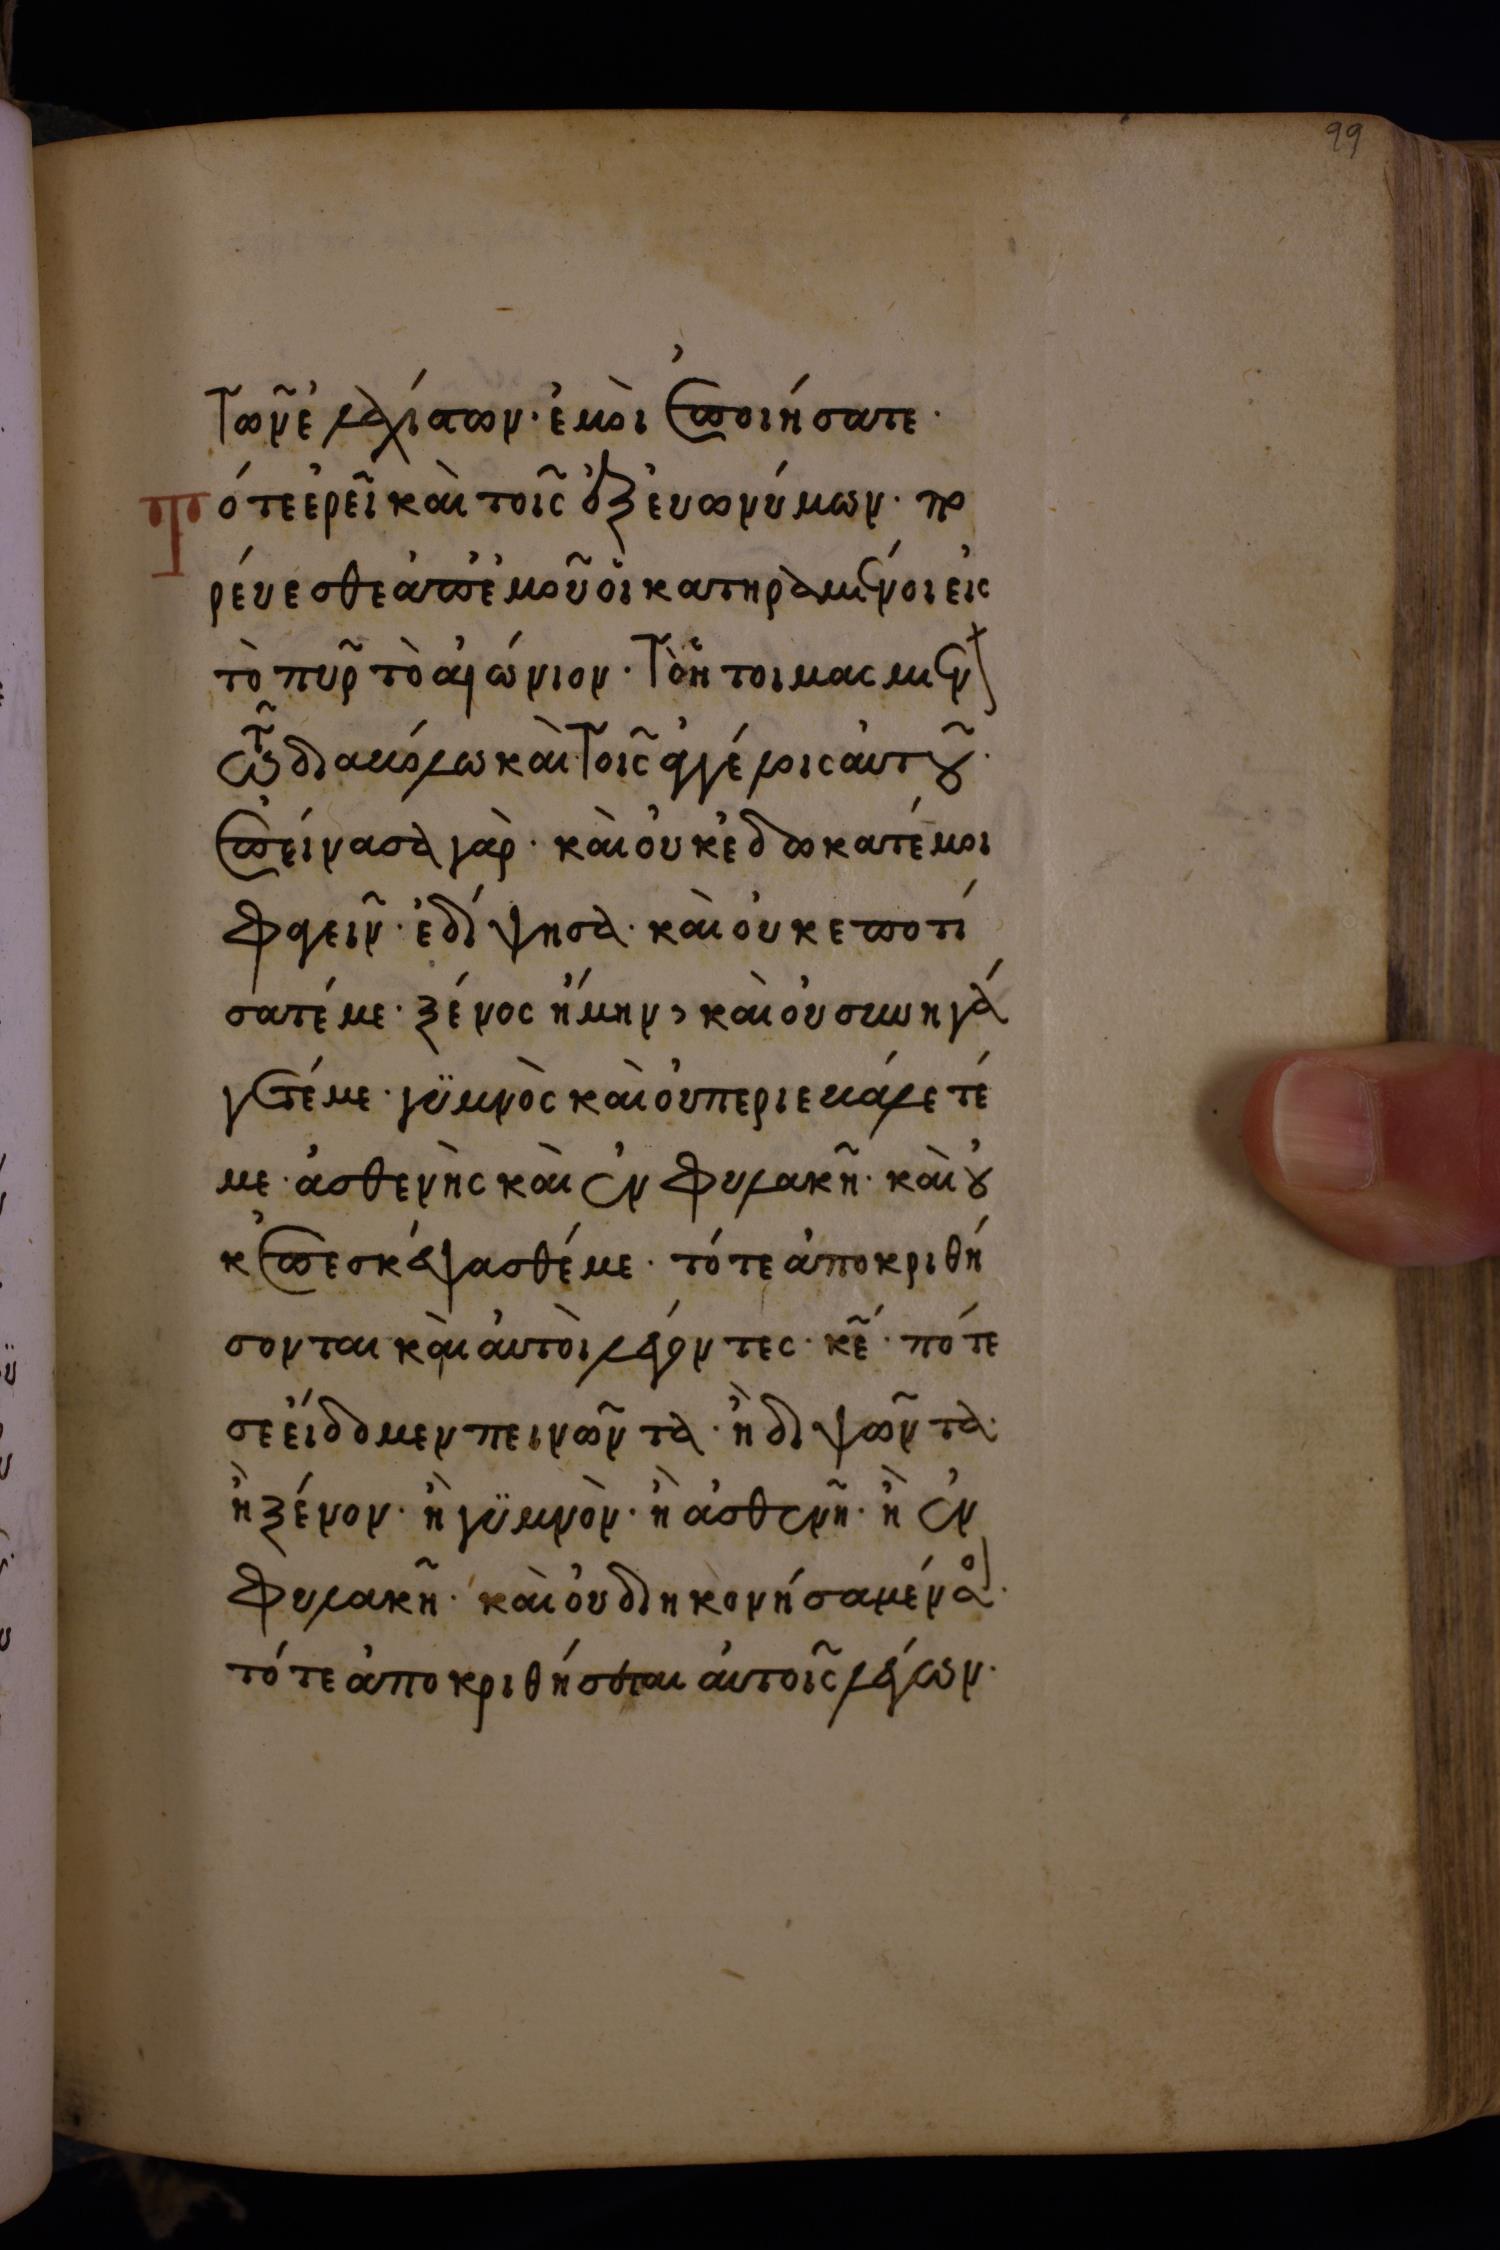 99
τῶν ἐλαχίστων· ἐμοὶ ἐποιήσατε·
Τότε ἐρεῖ καὶ τοῖς ἐξ εὐωνύμων· πο
ρέυεσθε ἀπ' ἐμοῦ ὁι κατηραμένοι εἰς
τὸ πῦρ τὸ αἰώνιον· τὸ ἡτοιμασμένον
τῶ διαβόλω καὶ τοῖς ἀγγέλοις ἀυτοῦ·
ἐπείνασα γὰρ· καὶ οὐκ ἐδώκατέ μοι
φαγεῖν· ἐδίψησα· καὶ οὐκ εποτί
σατέ με· ξένος ἤμην, καὶ οὐ συνηγά
γετέ με· γϋμνὸς καὶ οὐ περιεβάλετέ
με· ἀσθενὴς καὶ ἐν φυλακῆ· καὶ οὐ
κ ἐπεσκέψασθέ με· τότε ἀποκριθή
σονται καὶ ἀυτοὶ λέγοντες· κε̄· πότε
σε ἐίδομεν πεινῶντα· ἢ διψῶντα·
ἢ ξένον· ἢ γϋμνὸν· ἢ ἀσθενῆ· ἢ ἐν
φυλακῆ· καὶ οὐ διηκονήσαμέν σοι·
τότε ἀποκριθήσεται ἀυτοῖς λέγων·